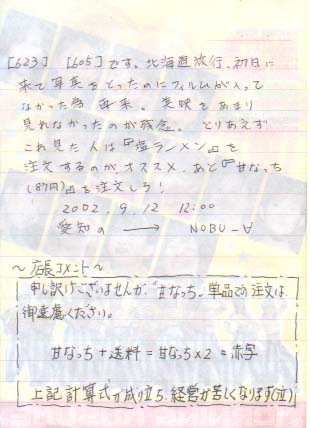 [623] [605]です。北海道旅行、初日に
来て写真をとったのにフィルムが入って
なかった為再来。美映をあまり
見れなかったのが残念。とりあえず
これ見た人は『塩ラーメン』を
注文するのがオススメ。あと『甘なっち
(87円)』を注文しろ!
2002.9.12 12:00
愛知の → NOBU-∀
〜店長コメント〜
申し訳けございませんが、“甘なっち”単品での注文は
御遠慮ください。
甘なっち+送料=甘なっち×2=赤字
上記計算式が成り立ち、経営が苦しくなります(泣)